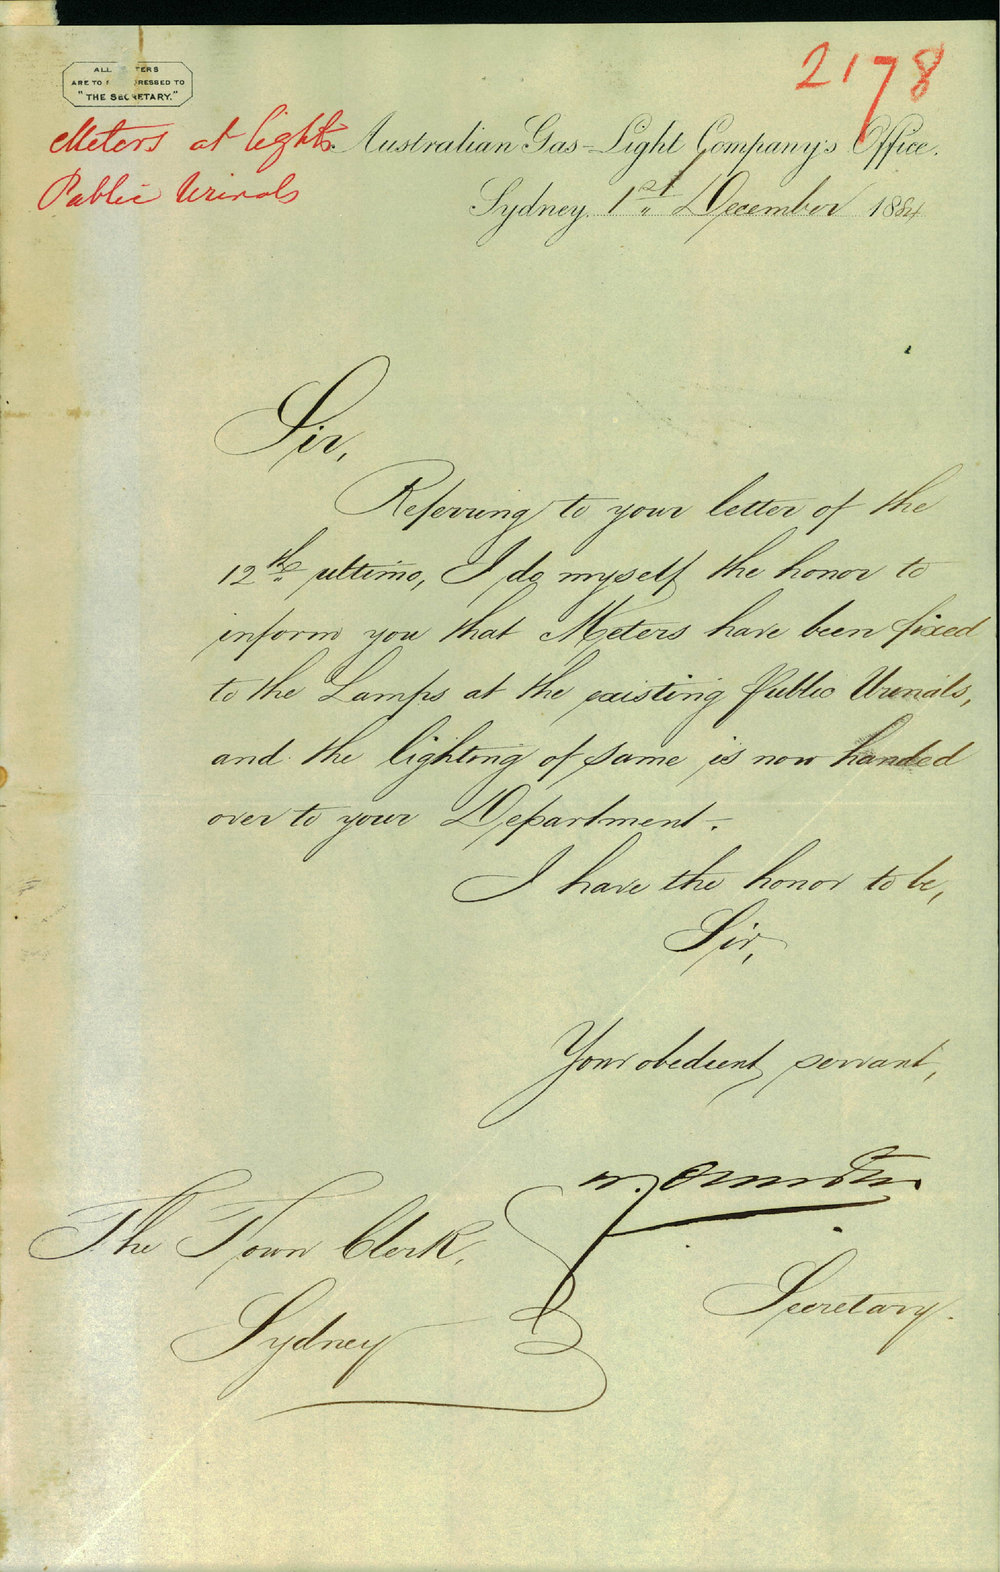 2178
ALL TERS
ARE TO RESSED TO
"THE SECRETARY."
Meters at lights
Public Urinals
Australian Gas-Light Company's Office.
Sydney 1st December 1884
Sir,
Referring to your letter of the
12th ultimo, I do myself the honor to
inform you that Meters have been fixed
to the Lamps at the existing Public Urinals,
and the lighting of same is now handed
over to your Department.
I have the honor to be,
Sir,
Your obedient servant,
Secretary.
The Town Clerk,
Sydney